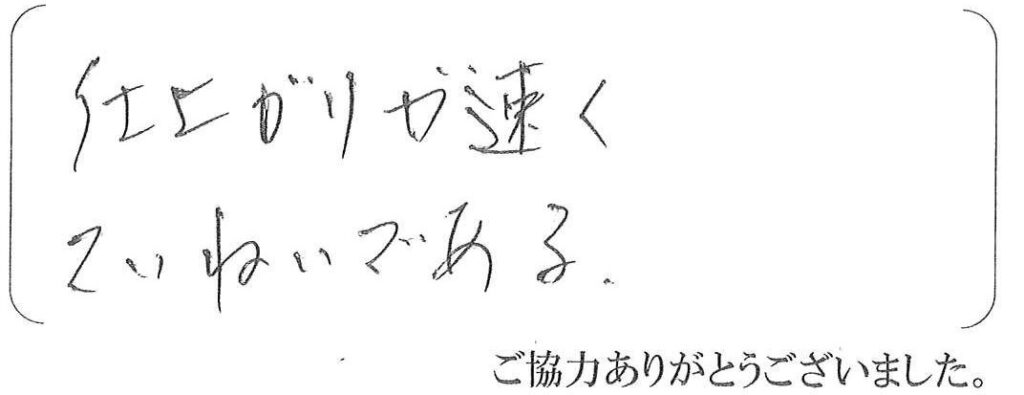 仕上がりが速く
ていねいである.
ご協力ありがとうございました。